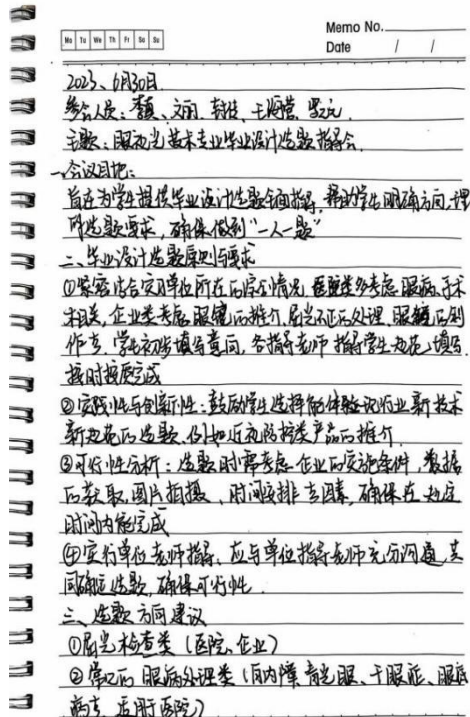 Memo No.
Mo Tu We Th Fr Sa Su
Date / /
2023、6月30日
参会人员：文丽
主题：眼视光技术专业毕业设计选题指导会
一、会议目的：
旨在为学生提供毕业设计选题全面指导，帮助学生明确方向，理
解选题要求，确保做到“一人一题”
二、毕业设计选题原则与要求
①紧密结合实习单位所在的岗位情况，医院类多考虑眼病、手术
相关，企业类考虑眼镜的推介，屈光不正的处理，眼镜的制
作等。学生初步填写意向，各指导老师指导学生规范填写
按时按质完成
②实践性与创新性：鼓励学生选择能体验视光行业新技术
新规范的选题，例如近视防控类产品的推介
③可行性分析：选题时需考虑企业的实施条件，数据
的获取，图片拍摄、时间安排等因素，确保在规定
时间内能完成
④实行单位老师指导，应与单位指导老师充分沟通，共
同确定选题，确保可行性
三、选题方向建议
①屈光检查类（医院、企业）
②常见的眼病处理类（白内障、青光眼、干眼症、眼底
病等，适用于医院）